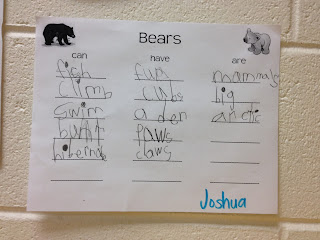 Bears
can have are
fish fury mammals
climb cubs big
swim a den arctic
hunt paws
hibernate claws
Joshua